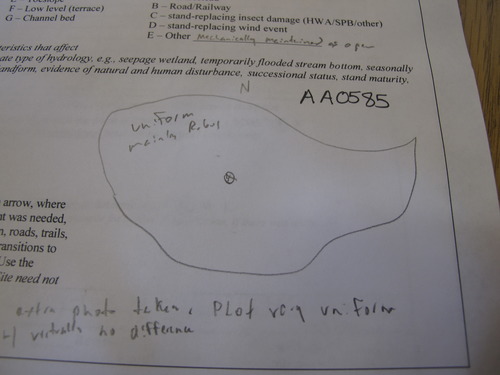 F – Low level (terrace)
G – Channel bed
B – Road/Railway
C – stand-replacing insect damage (HWA/SPB/other)
D – stand-replacing wind event
E – Other mechanically maintained as open
teristics that affect
ate type of hydrology, e.g., seepage wetland, temporarily flooded stream bottom, seasonally
andform, evidence of natural and human disturbance, successional status, stand maturity,
N
AA0585
uniform
mainly Rubus
e arrow, where
nt was needed,
n, roads, trails,
ransitions to
Use the
ite need not
extra photo taken, Plot very uniform
w/ virtually no difference